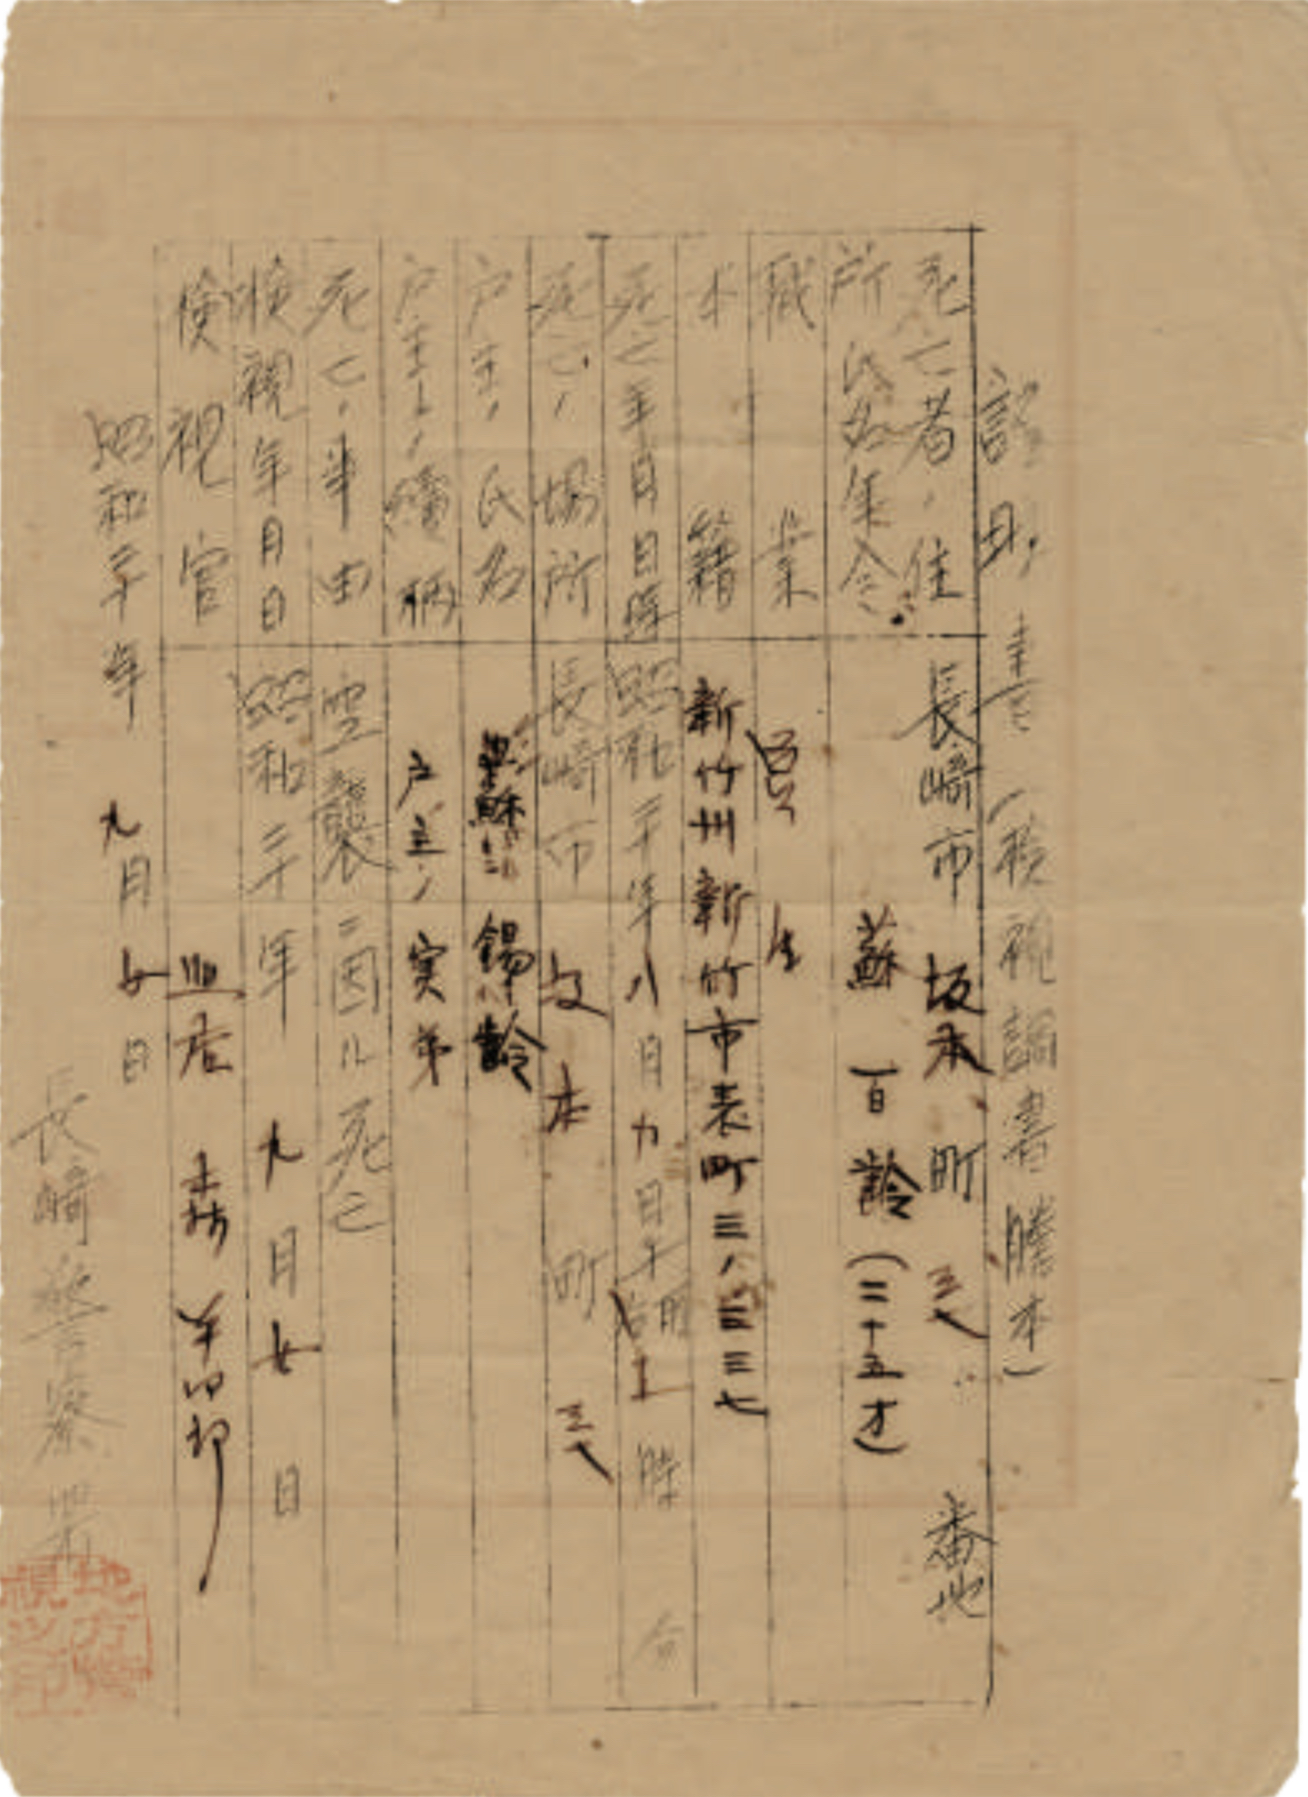 証明書(検視調書謄本)
死亡者ノ住
所氏名年令
長崎市坂本町三八番地
蘇百齢(二十五才)
職業
学生
本籍
新竹州新竹市表町三ノ三三七
死亡年月日時
昭和二十年八月九日午前十一時 分
死亡ノ場所
長崎市坂本町三八
戸主ノ氏名
蘇錫齢
戸主トノ續柄
戸主ノ実弟
死亡ノ事由
空襲ニ因ル死亡
検視年月日
昭和二十年九月七日
検視官
昭和二十年九月七日
長崎警察署
地方警
視之印